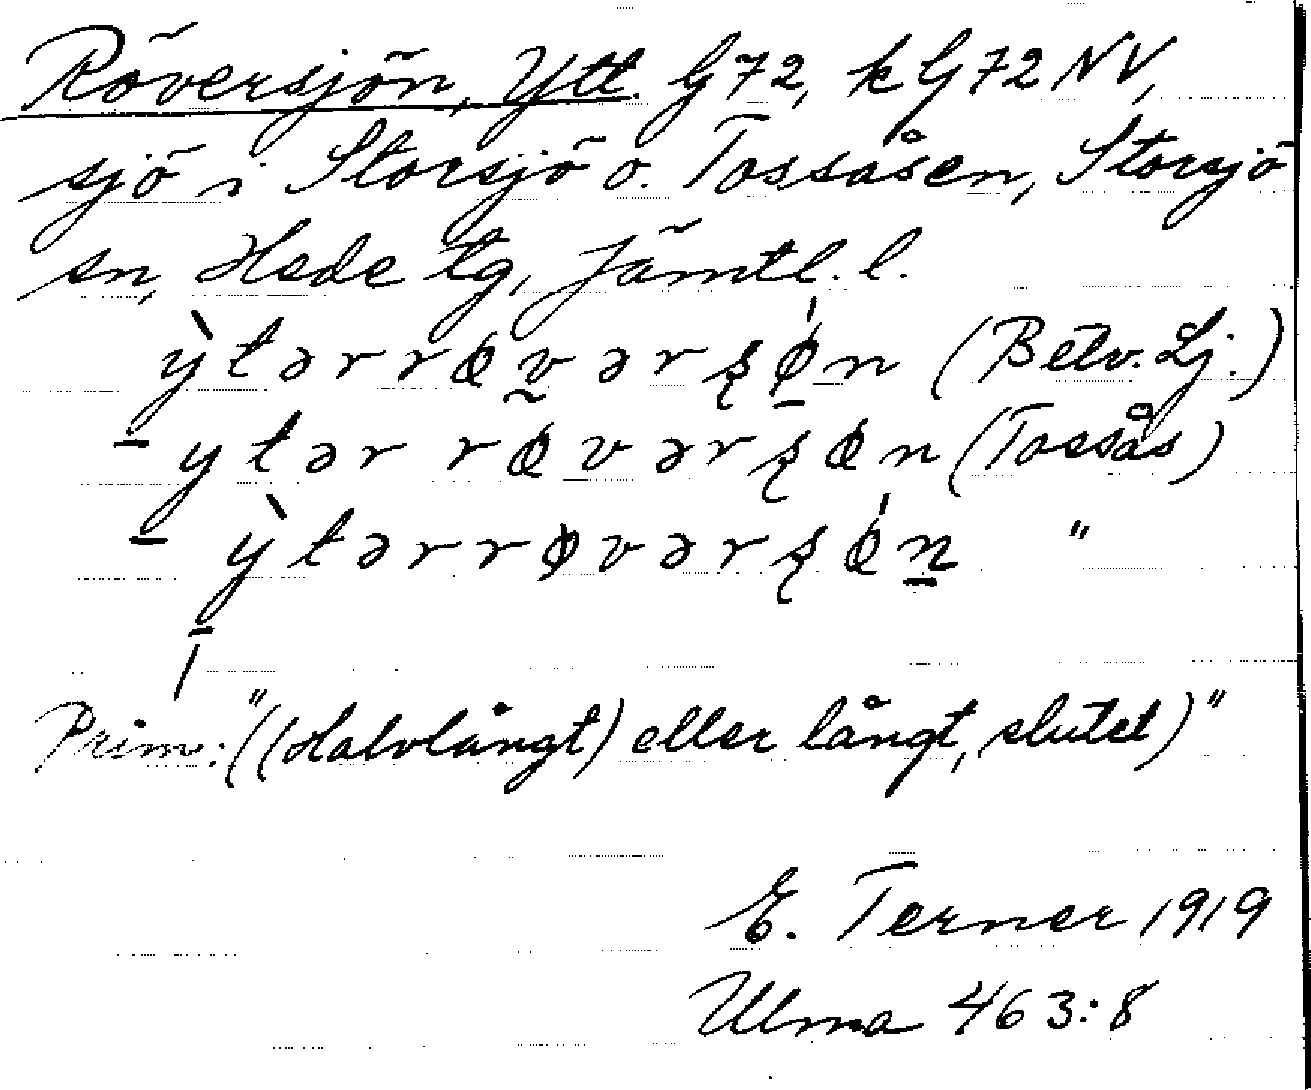 Röversjön, Ytt. G72, kG72NV,
sjö i Storsjö o. Tossåsen, Storsjö
sn, Hede tg, Jämtl. l.
ỳtərrøvərʂǿn (Betv. Lj.)
- ytər røvərʂøn (Tossås)
- ỳtərrøvərʂǿn "
Prim: "((Halvlångt) eller långt, slutet)"
E. Terner 1919
Ulma 463:8